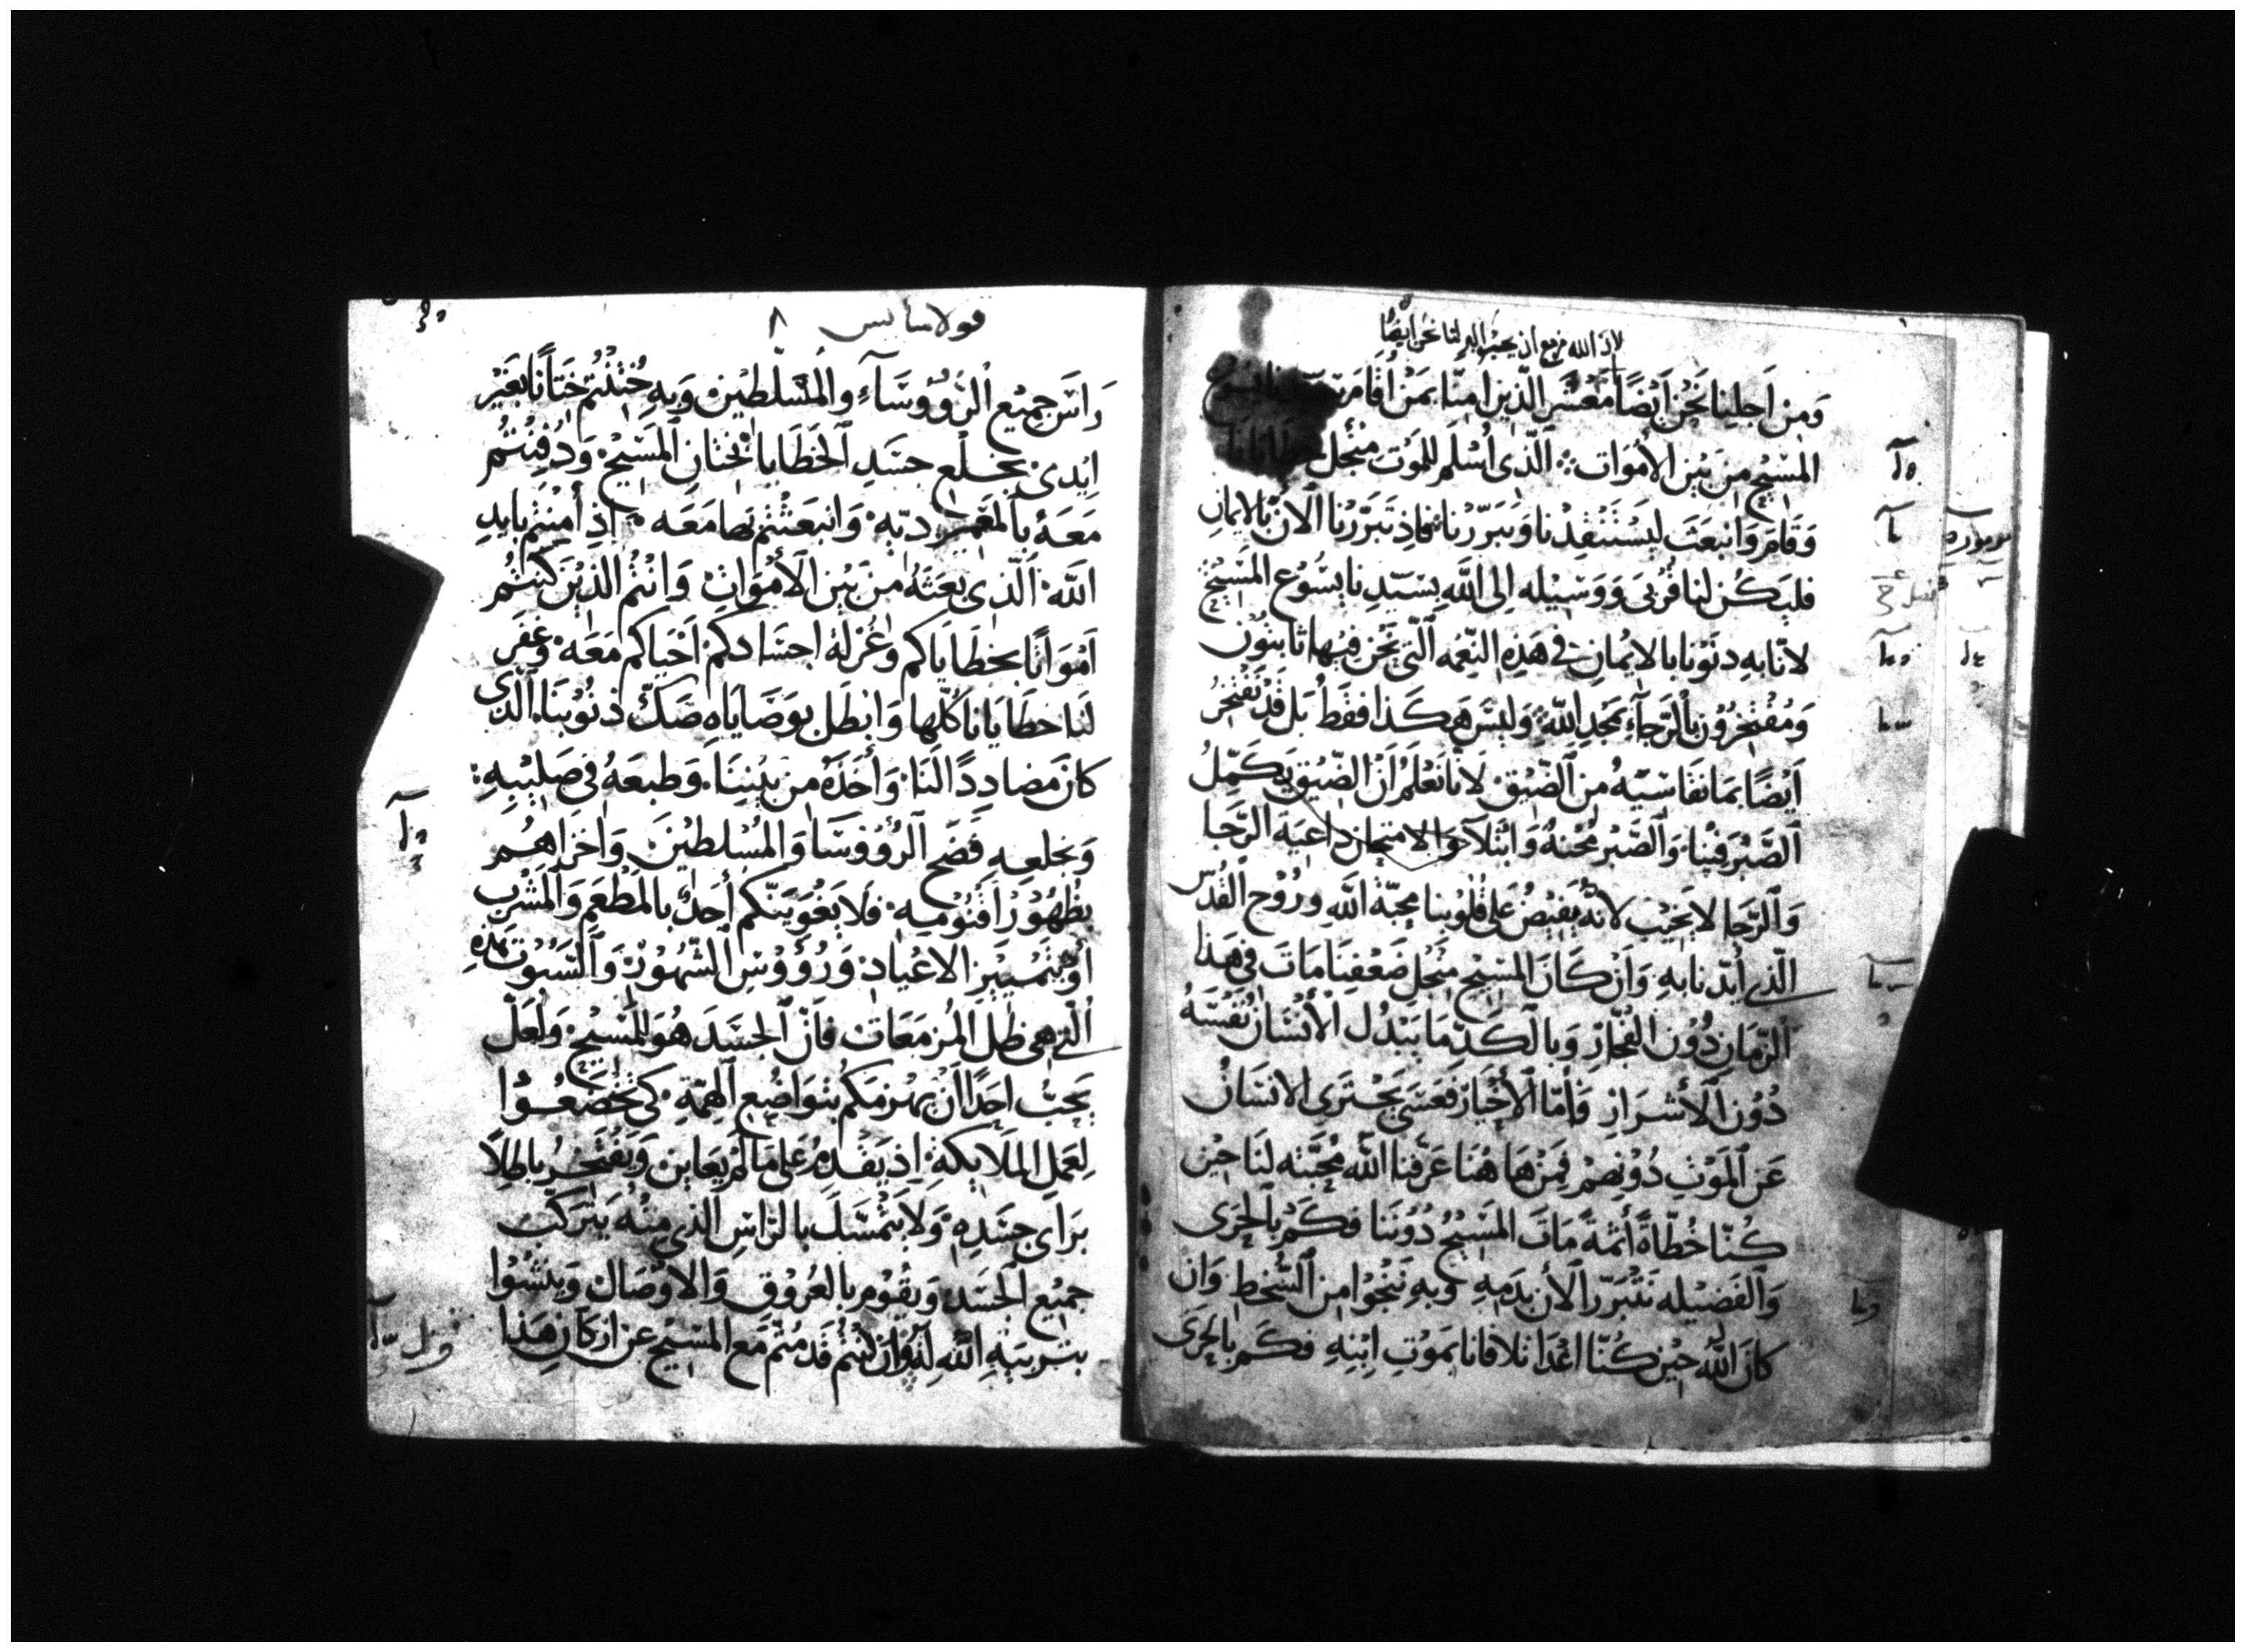 لان الله مزمع ان يحسب البر لنا نحن ايضًا
وَمِن اَجلِنا نَحْنُ اَيْضًا مَعْشَر الَّذِين امنّا بمَنْ أقامَ يسُوع
المسْيح مِن بَيْن الأموَات الَّذى أسْلَم للمَوت منْجل خطايانا
وَقَامَ وَانبعَث ليَسْتَنْقِذنا وَيبَرّرنا فاِذ تبَرّرنا الآن بالايمان
فليَكُن لنا قُربى وَوَسِيْله اِلى اللّه بسَيّدِنا يسُوع المَسْيح
لانّا بهِ دنَوْنا بالايمان في هَذِهِ النِّعمه الَّتى نَحْن فيْها ثابتُون
وَمُفْتخِرُون بالرّجآءِ بمَجدِ اللّه وَليسَ هَكَذا فقَط بَل قَدْ نَفْتخِرُ
اَيْضًا بمَا نقَاسيْهُ مِن الضّيْق لانّا نَعْلَم اَن الضّيْق يكَمِّلُ
الصَّبْر فيْنا وَالصَّبْر مُحْنهُ وَابْتلآءَ وَالامتحان داعيَة الرّجَا
وَالرَّجا لا يخيْب لانّهُ يُفيْضُ عَلى قُلوْبنا محَبّة اللّه ورُوْح القُدُس
الّذي أُيّدنا بهِ وَاَن كَانَ المسْيح منْجل ضَعْفِنا مَاتَ في هَذا
الزّمان دُوْن الفُجّار وَبالكَدّ مَا يَبْدُل الأنْسَان نَفْسَهُ
دُوْن الأشرَار وَأمّا الأخْيار فعَسَى يَجْتَرى الانسَان
عَن المَوْت دُوْنهمْ فمِنْ هَا هُنَا عَرّفنا اللّه محَبَّته لنَا حِيْن
كُنّا خُطاةً أثمَة مَاتَ المَسْيحُ دُوْننا فكَمْ بالحَرَى
وَالفَضيْله نَتْبَرّر الأن بدَمهِ وَبهِ نَنْجُوا مِن السُّخط وَان
كانَ اللّه حِيْن كُنّا اعْدَا تلافانا بمَوْت اِبْنهِ فكَم بالحَرَى
قولاسايس ٨
رَاسَ جمِيْع الرُؤوسَآءِ والمُسَلّطيْن وَبهِ خُتِنْتُم ختَانًا بغَيْر
اَيدى بخَلْع جسَدِ الخطَايا بختَان المَسْيح وَدُفِنْتُم
مَعَهُ بالمَعْموديّهِ وَانبعَثتُم بهَا مَعَه اِذ أمنتُم بايدِ
اللّه الَّذى بَعَثَهُ مِن بَيْن الأمْوَات وَانْتُم الذيْن كنتُم
اَمْوَاتًا بخطَايَاكم وغُرْلة اجسَادكم اَحْيَاكم مَعَه وَغفَر
لنا خطَايَانا كُلّها وَابطَل بوَصَايَاه صَكّ ذنُوبنَا الَّذى
كانَ مضادِدًا لنَا وَأخَذَهُ مِن بَيْننا وَطبعَهُ في صَليْبهِ
وَبخلعهِ فَضَح الرُؤُوسَا وَالمُسْلطيْن وَاخزاهُم
بظُهُوْر اقنُوْمهِ فَلا يغُويَنّكم أحَدٌ بالمَطْعَم وَالمَشْرَب
أوْ بتَميْيز الاَعْياد وَرُؤُوْس الشّهُوْر وَالسّبُوْت هذه
التي هى ظِل المُزمَعَات فأنّ الجسَدَ هُوَ المسْيح وَلعَلّ
يحَبّ احَدًا ان يهْزمَكُم بتوَاضُع الهمّة كى تَخْضَعُوْا
لِعَمل المَلَايكةِ اِذ يَقْدمُ عَلى مَا لمْ يعَاين وَيَفْتخرُ باطِلًا
برَاى جسَدِهِ وَلا يتْمسَك بالرّاس الذي مِنْهُ يتْركّب
جمِيْع الجسَد وَيقُوْم بالعُرُوْق وَالاوْصَال وَينشُوا
بتربيَةِ اللّهِ فان كُنتُم قَد مُتْم مَع المسْيح عن اركَان هَذا